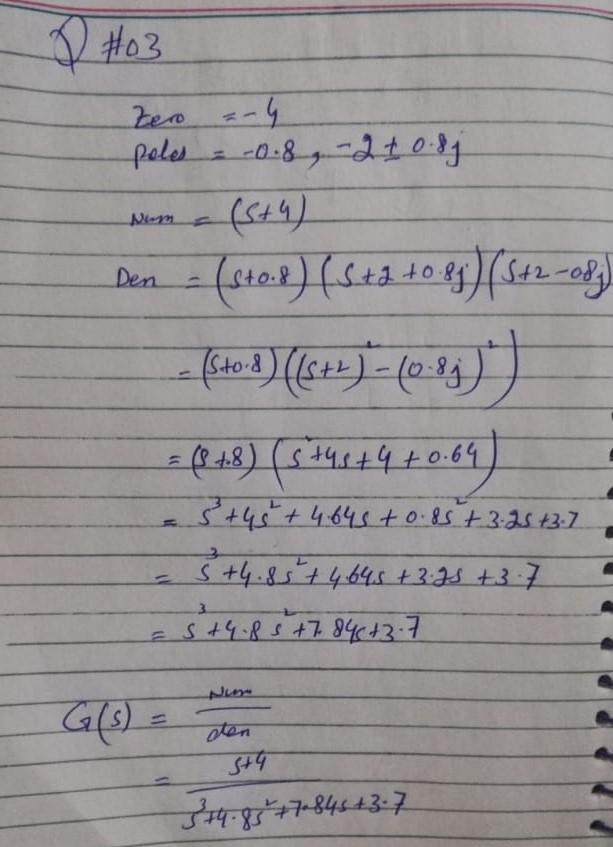 Q #03
Zero = -4
Poles = -0.8, -2 ± 0.8j
Num = (s+4)
Den = (s+0.8) (s+2+0.8j) (s+2-08j)
= (s+0.8) ((s+2)² - (0.8j)²)
= (s+.8) (s²+4s+4+0.64)
= s³+4s²+4.64s+0.8s²+3.2s+3.7
= s³+4.8s²+4.64s+3.2s+3.7
= s³+4.8s²+7.84s+3.7
G(s) = Num / den
= s+4 / s³+4.8s²+7.84s+3.7